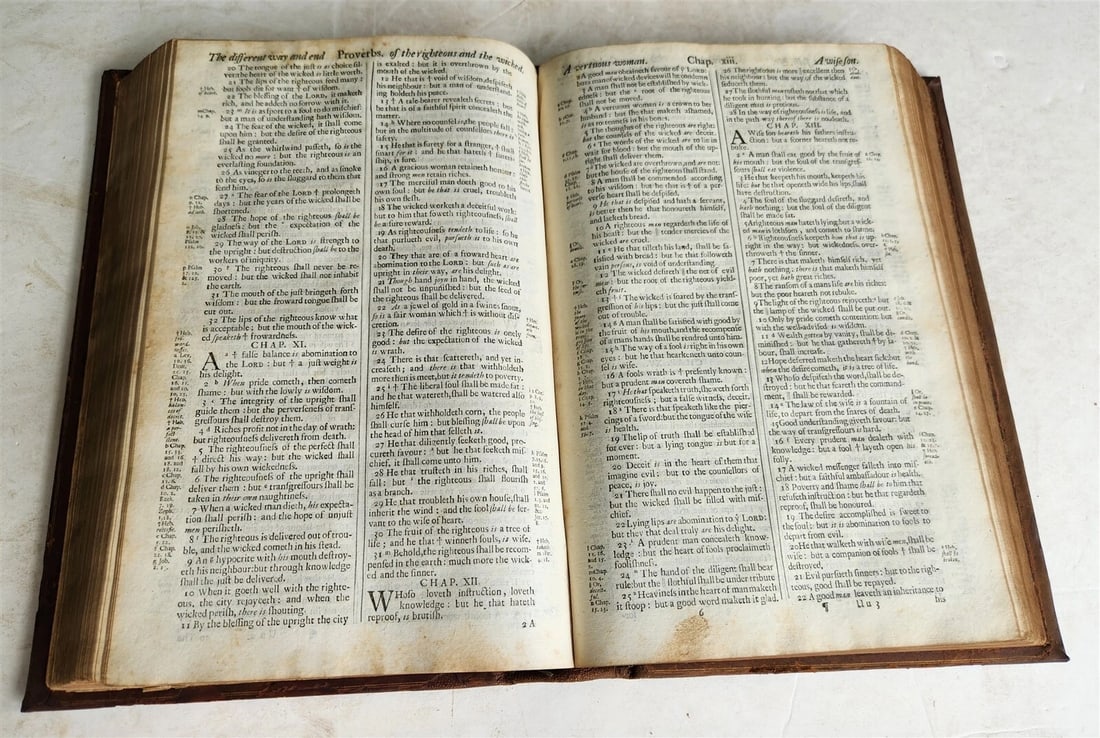 The different way and end Proverbs. of the righteous and the wicked.
20 The tongue of the just is as choice sil-
ver: the heart of the wicked is little worth.
21 The lips of the righteous feed many:
but fools die for want of wisdom.
22 The blessing of the LORD, it maketh
rich, and he addeth no sorrow with it.
23 It is as sport to a fool to do mischief:
but a man of understanding hath wisdom.
24 The fear of the wicked, it shall come
upon him: but the desire of the righteous
shall be granted.
25 As the whirlwind passeth, so is the
wicked no more: but the righteous is an
everlasting foundation.
26 As vineger to the teeth, and as smoke
to the eyes, so is the sluggard to them that
send him.
27 The fear of the LORD prolongeth
days: but the years of the wicked shall be
shortened.
28 The hope of the righteous shall be
gladness: but the expectation of the
wicked shall perish.
29 The way of the LORD is strength to
the upright: but destruction shall be to the
workers of iniquity.
30 The righteous shall never be re-
moved: but the wicked shall not inhabit
the earth.
31 The mouth of the just bringeth forth
wisdom: but the froward tongue shall be
cut out.
32 The lips of the righteous know what
is acceptable: but the mouth of the wick-
ed speaketh frowardness.
CHAP. XI.
A false balance is abomination to
the LORD: but a just weight is
his delight.
2 When pride cometh, then cometh
shame: but with the lowly is wisdom.
3 The integrity of the upright shall
guide them: but the perverseness of trans-
gressours shall destroy them.
4 Riches profit not in the day of wrath:
but righteousness delivereth from death.
5 The righteousness of the perfect shall
direct his way: but the wicked shall
fall by his own wickedness.
6 The righteousness of the upright shall
deliver them: but transgressours shall be
taken in their own naughtiness.
7 When a wicked man dieth, his expecta-
tion shall perish: and the hope of unjust
men perisheth.
8 The righteous is delivered out of trou-
ble, and the wicked cometh in his stead.
9 An hypocrite with his mouth destroy-
eth his neighbour: but through knowledge
shall the just be delivered.
10 When it goeth well with the righte-
ous, the city rejoyceth: and when the
wicked perish, there is shouting.
11 By the blessing of the upright the city
is exalted: but it is overthrown by the
mouth of the wicked.
12 He that is void of wisdom, despiseth
his neighbour: but a man of understand-
ing holdeth his peace.
13 A tale-bearer revealeth secrets: but
he that is of a faithful spirit concealeth the
matter.
14 Where no counsel is, the people fall:
but in the multitude of counsellors there is
safety.
15 He that is surety for a stranger, shall
smart for it: and he that hateth sureti-
ship, is sure.
16 A gracious woman retaineth honour:
and strong men retain riches.
17 The merciful man doeth good to his
own soul: but he that is cruel, troubleth
his own flesh.
18 The wicked worketh a deceitful work:
but to him that soweth righteousness, shall
be a sure reward.
19 As righteousness tendeth to life: so he
that pursueth evil, pursueth it to his own
death.
20 They that are of a froward heart are
abomination to the LORD: but such as are
upright in their way, are his delight.
21 Though hand joyn in hand, the wicked
shall not be unpunished: but the seed of
the righteous shall be delivered.
22 As a jewel of gold in a swines snout,
so is a fair woman which is without dis-
cretion.
23 The desire of the righteous is onely
good: but the expectation of the wicked
is wrath.
24 There is that scattereth, and yet in-
creaseth; and there is that withholdeth
more then is meet, but it tendeth to poverty.
25 The liberal soul shall be made fat:
and he that watereth, shall be watered also
himself.
26 He that withholdeth corn, the people
shall curse him: but blessing shall be upon
the head of him that selleth it.
27 He that diligently seeketh good, pro-
cureth favour: but he that seeketh mis-
chief, it shall come unto him.
28 He that trusteth in his riches, shall
fall: but the righteous shall flourish
as a branch.
29 He that troubleth his own house, shall
inherit the wind: and the fool shall be ser-
vant to the wise of heart.
30 The fruit of the righteous is a tree of
life; and he that winneth souls, is wise.
31 Behold, the righteous shall be recom-
pensed in the earth: much more the wick-
ed and the sinner.
CHAP. XII.
Whoso loveth instruction, loveth
knowledge: but he that hateth
reproof, is brutish.
2 A
A vertuous woman. Chap. xiii. A wise son.
2 A good man obtaineth favour of ẏ LORD:
but a man of wicked devices will he condemn.
3 A man shall not be established by wick-
edness: but the root of the righteous
shall not be moved.
4 A vertuous woman is a crown to her
husband: but she that maketh ashamed,
is as rottenness in his bones.
5 The thoughts of the righteous are right:
but the counsels of the wicked are deceit.
6 The words of the wicked are to lie in
wait for bloud: but the mouth of the up-
right shall deliver them.
7 The wicked are overthrown, and are not:
but the house of the righteous shall stand.
8 A man shall be commended according
to his wisdom: but he that is of a per-
verse heart shall be despised.
9 He that is despised and hath a servant,
is better then he that honoureth himself,
and lacketh bread.
10 A righteous man regardeth the life of
his beast: but the tender mercies of the
wicked are cruel.
11 He that tilleth his land, shall be sa-
tisfied with bread: but he that followeth
vain persons, is void of understanding.
12 The wicked desireth the net of evil
men: but the root of the righteous yield-
eth fruit.
13 The wicked is snared by the trans-
gression of his lips: but the just shall come
out of trouble.
14 A man shall be satisfied with good by
the fruit of his mouth, and the recompense
of a mans hands shall be rendred unto him.
15 The way of a fool is right in his own
eyes: but he that hearkeneth unto coun-
sel is wise.
16 A fools wrath is presently known:
but a prudent man covereth shame.
17 He that speaketh truth, sheweth forth
righteousness: but a false witness, deceit.
18 There is that speaketh like the pier-
cings of a sword: but the tongue of the wise
is health.
19 The lip of truth shall be established
for ever: but a lying tongue is but for a
moment.
20 Deceit is in the heart of them that
imagine evil: but to the counsellors of
peace, is joy.
21 There shall no evil happen to the just:
but the wicked shall be filled with mis-
chief.
22 Lying lips are abomination to ẏ LORD:
but they that deal truly are his delight.
23 A prudent man concealeth know-
ledge: but the heart of fools proclaimeth
foolishness.
24 The hand of the diligent shall bear
rule: but the slothful shall be under tribute
25 Heaviness in the heart of man maketh
it stoop: but a good word maketh it glad.
26 The righteous is more excellent then
his neighbour: but the way of the wicked
seduceth them.
27 The slothful man rosteth not that which
he took in hunting: but the substance of a
diligent man is precious.
28 In the way of righteousness is life, and
in the path-way thereof there is no death.
CHAP. XIII.
A Wise son heareth his fathers instru-
ction: but a scorner heareth not re-
buke.
2 A man shall eat good by the fruit of
his mouth: but the soul of the transgres-
sours shall eat violence.
3 He that keepeth his mouth, keepeth his
life: but he that openeth wide his lips, shall
have destruction.
4 The soul of the sluggard desireth, and
hath nothing: but the soul of the diligent
shall be made fat.
5 A righteous man hateth lying: but a wick-
ed man is lothsom, and cometh to shame.
6 Righteousness keepeth him that is up-
right in the way: but wickedness over-
throweth the sinner.
7 There is that maketh himself rich, yet
hath nothing: there is that maketh himself
poor, yet hath great riches.
8 The ransom of a mans life are his riches:
but the poor heareth not rebuke.
9 The light of the righteous rejoyceth: but
the lamp of the wicked shall be put out.
10 Only by pride cometh contention: but
with the well-advised is wisdom.
11 Wealth gotten by vanity, shall be di-
minished: but he that gathereth by la-
bour, shall increase.
12 Hope deferred maketh the heart sick: but
when the desire cometh, it is a tree of life.
13 Whoso despiseth the word, shall be de-
stroyed: but he that feareth the command-
ment, shall be rewarded.
14 The law of the wise is a fountain of
life, to depart from the snares of death.
15 Good understanding giveth favour: but
the way of transgressours is hard.
16 Every prudent man dealeth with
knowledge: but a fool layeth open his
folly.
17 A wicked messenger falleth into mis-
chief: but a faithful ambassadour is health.
18 Poverty and shame shall be to him that
refuseth instruction: but he that regardeth
reproof, shall be honoured.
19 The desire accomplished is sweet to
the soul: but it is abomination to fools to
depart from evil.
20 He that walketh with wise men, shall be
wise: but a companion of fools shall be
destroyed.
21 Evil pursueth sinners: but to the righ-
teous, good shall be repayed.
22 A good man leaveth an inheritance to
¶ Uu 3 his